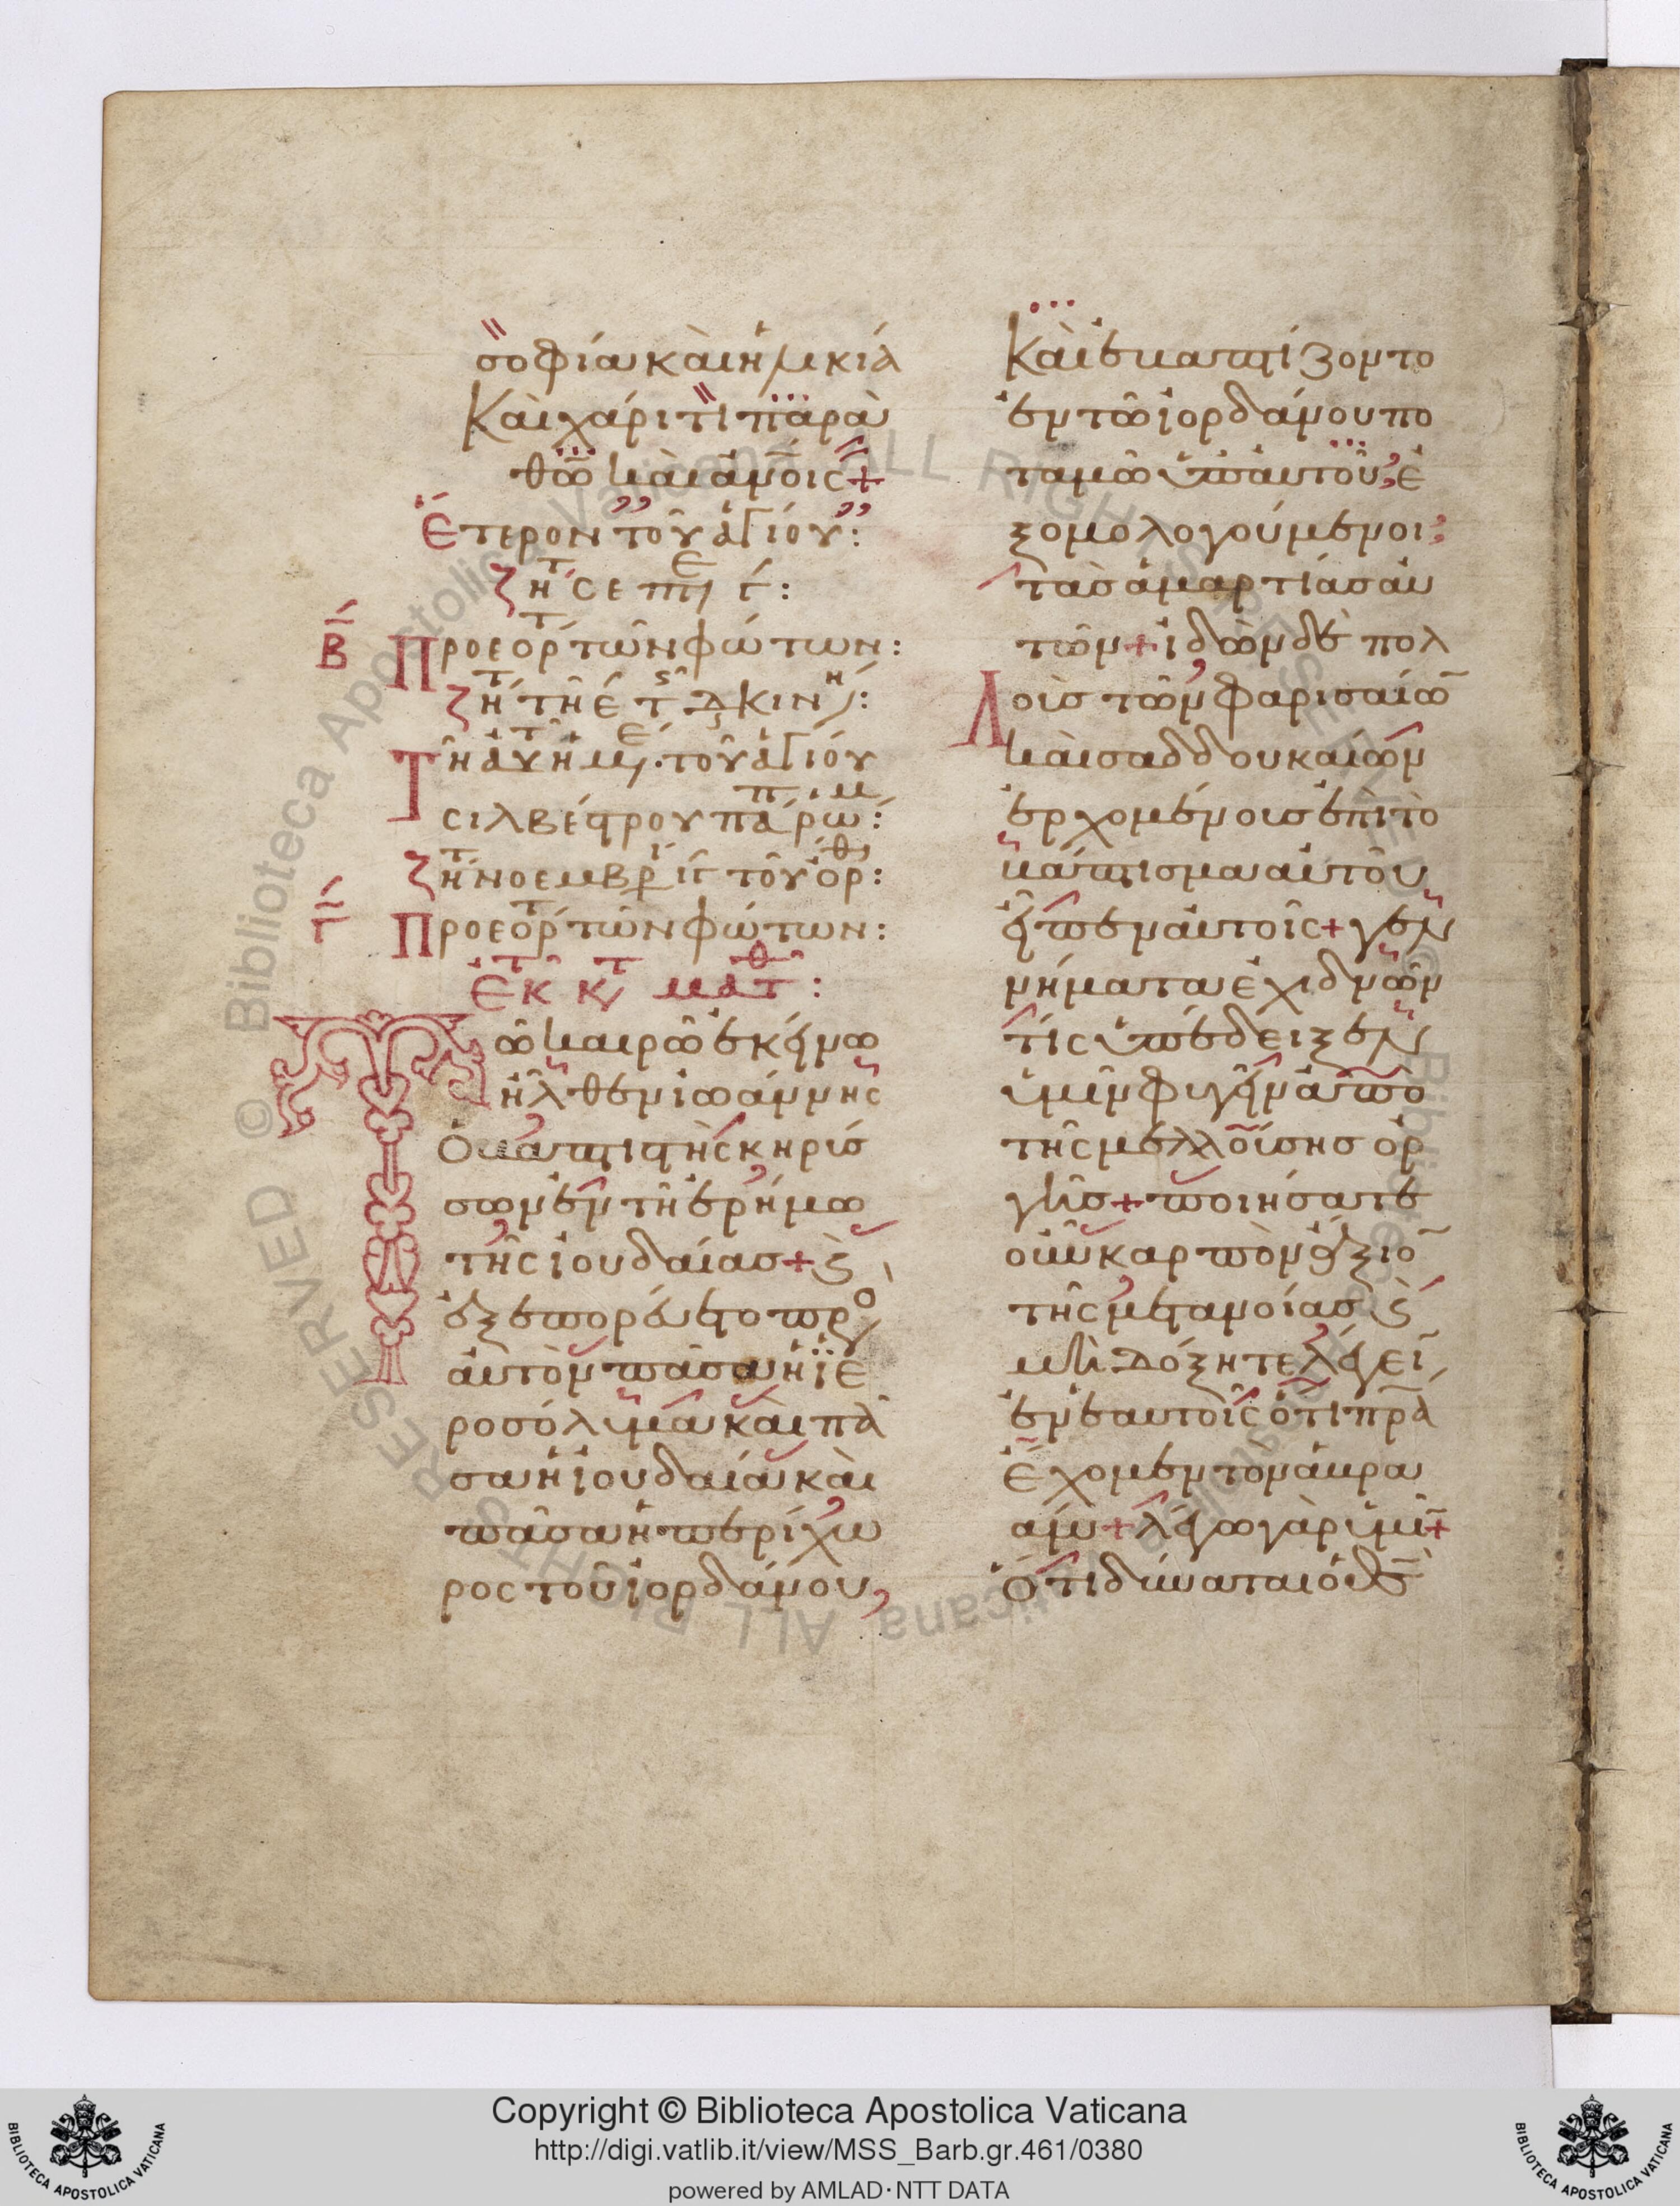 σοφία καὶ ἡλικία
Καὶ χάριτι παρὰ
θῶ καὶ ἀνοις +
Ἕτερον τοῦ ἁγίου:
ζη σεπ γ:
Β Προεορ τῶν φώτων:
ζη τῆ ε κιν:
Τῆ αυ ημ. τοῦ ἁγίου
σιλβέστρου πα ρω:
ζη νοεμβρ ιγ τοῦ ορ:
Γ Προεορ τῶν φώτων:
Ἐκ κ ματθ:
Τῶ καιρῶ ἐκείνω
ἦλθεν ἰωάννης
Ὁ βαπτιστὴς κηρύσ
σων ἐν τῆ ἐρήμω
τῆς ἰουδαίας + ϗ
ἐξεπορεύετο πρ
αὐτὸν πᾶσα ἡ ϊε
ροσόλυμα καὶ πᾶ
σα ἡ ἰουδαία καὶ
πᾶσα ἡ περίχω
ρος τοῦ ἰορδάνου,
Καὶ ἐβαπτίζοντο
ἐν τῶ ἰορδάνου πο
ταμῶ ὑπ' αὐτοῦ, ἐ
ξομολογούμενοι
τὰς ἁμαρτίας αὐ
τῶν + ἰδὼν δὲ πολ
λοὺς τῶν φαρισαίω
καὶ σαδδουκαίων
ἐρχομένους ἐπὶ τὸ
βάπτισμα αὐτοῦ
εἶπεν αὐτοῖς + γεν
νήματα ἐχιδνῶν
τίς ὑπέδειξεν
ὑμῖν φυγεῖν ἀπὸ
τῆς μελλούσης ὀρ
γῆς + ποιήσατε
οὖν καρπὸν ἄξιο
τῆς μετανοίας ϗ
μὴ δόξητε λέγει
ἐν ἑαυτοῖς ὅτι πρα
ἔχομεν τὸν ἀβρα
άμ + λέγω γὰρ ὑμῖ +
Ὅτι δύναται ὁ θς
Copyright © Biblioteca Apostolica Vaticana
http://digi.vatlib.it/view/MSS_Barb.gr.461/0380
powered by AMLAD·NTT DATA